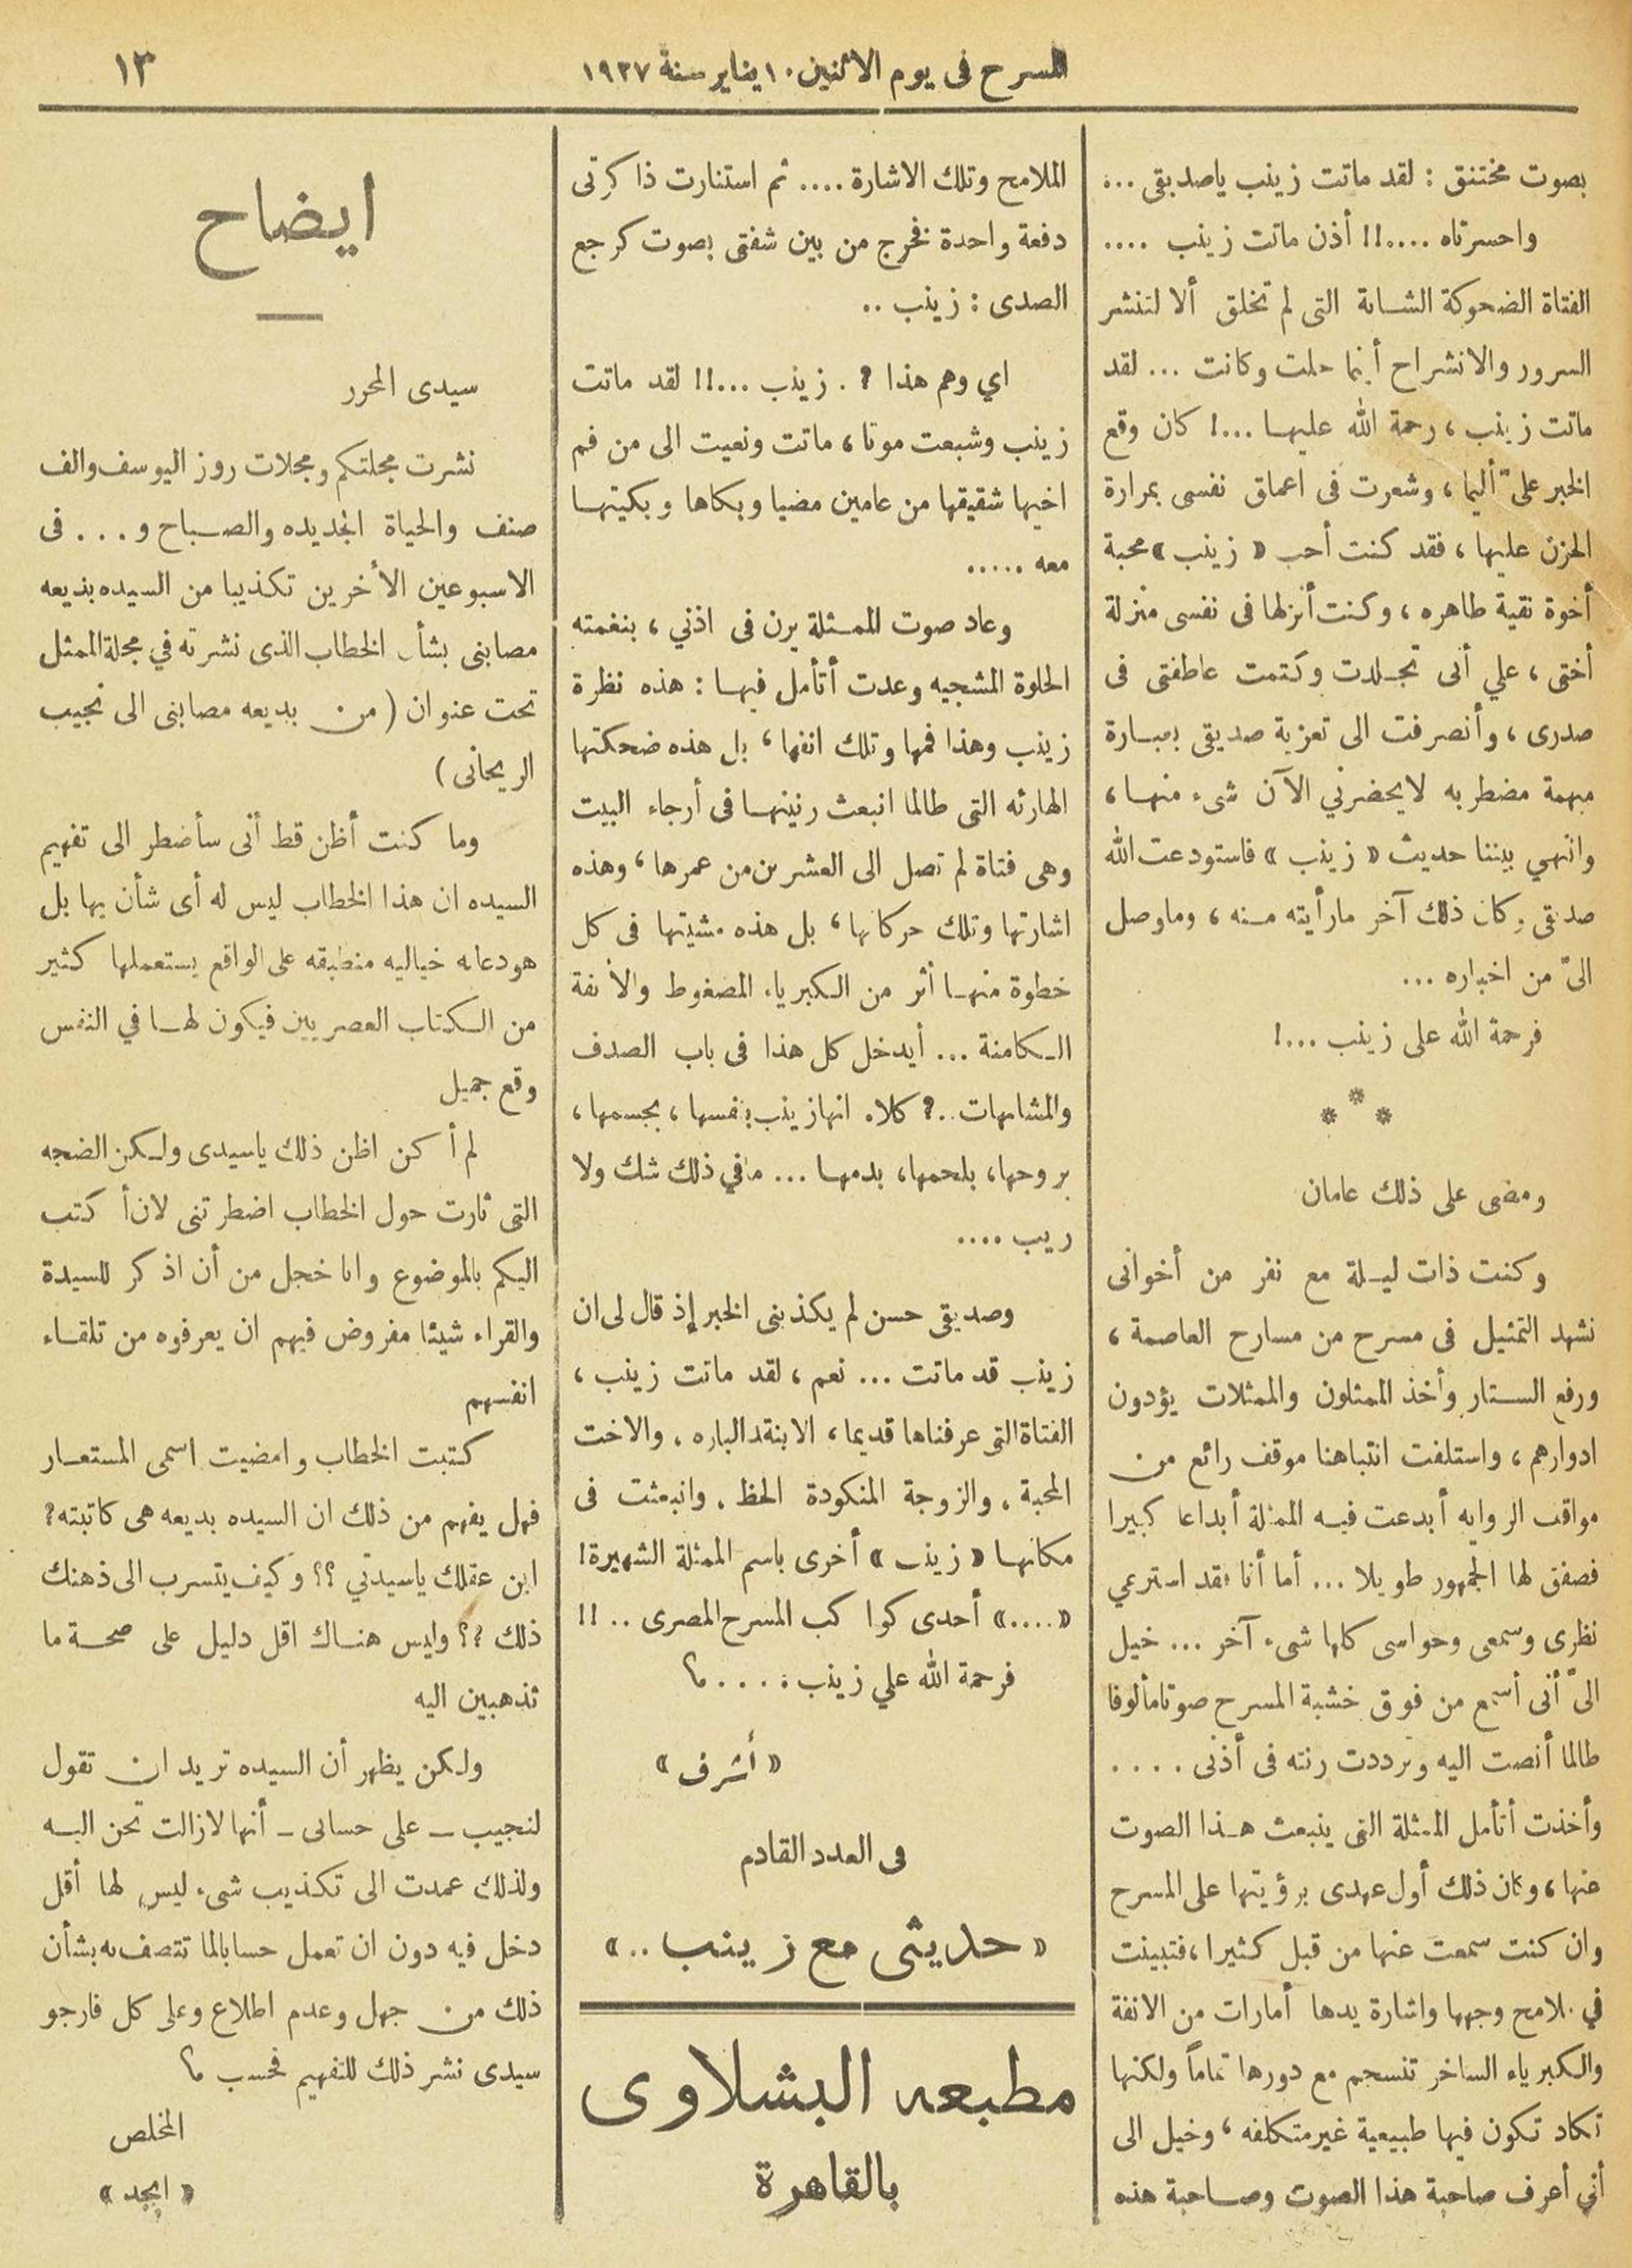 المسرح فى يوم الاثنين ١٠ يناير سنة ١٩٢٧
١٣
بصوت مختنق : لقد ماتت زينب ياصديقى ...
واحسرتاه ....!! أذن ماتت زينب ....
الفتاة الضحوكة الشابة التى لم تخلق ألا لتنشر
السرور والانشراح أينما حلت وكانت ... لقد
ماتت زينب ، رحمة الله عليها ...! كان وقع
الخبر علىّ أليما ، وشعرت فى اعماق نفسى بمرارة
الحزن عليها ، فقد كنت أحب « زينب » محبة
أخوة نقية طاهره ، وكنت أنزلها فى نفسى منزلة
أختى ، علي أنى تجلدت وكتمت عاطفتى فى
صدرى ، وأنصرفت الى تعزية صديقى بعبارة
مبهمة مضطربه لايحضرني الآن شىء منها ،
وانهي بيننا حديث « زينب » فاستودعت الله
صديقى وكان ذلك آخر مارأيته منه ، وماوصل
الىّ من اخباره ...
فرحمة الله على زينب ...!
* * *
ومضى على ذلك عامان
وكنت ذات ليلة مع نفر من أخوانى
نشهد التمثيل فى مسرح من مسارح العاصمة ،
ورفع الستار وأخذ الممثلون والممثلات يؤدون
ادوارهم ، واستلفت انتباهنا موقف رائع من
مواقف الروايه أبدعت فيه الممثلة أبداعا كبيرا
فصفق لها الجمهور طويلا ... أما أنا فقد استرعي
نظرى وسمعى وحواسى كلها شىء آخر ... خيل
الىّ أنى أسمع من فوق خشبة المسرح صوتا مألوفا
طالما أنصت اليه وترددت رنته فى أذنى ....
وأخذت أتأمل الممثلة التى ينبعث هذا الصوت
عنها ، وكان ذلك أول عهدى برؤيتها على المسرح
وان كنت سمعت عنها من قبل كثيرا ، فتبينت
في ملامح وجهها واشارة يدها أمارات من الانفة
والكبرياء الساخر تنسجم مع دورها تماماً ولكنها
تكاد تكون فيها طبيعية غير متكلفه ، وخيل الى
أني أعرف صاحبة هذا الصوت وصاحبة هذه
الملامح وتلك الاشارة .... ثم استنارت ذاكرتى
دفعة واحدة فخرج من بين شفتى بصوت كرجع
الصدى : زينب ..
اي وهم هذا ? . زينب ...!! لقد ماتت
زينب وشبعت موتا ، ماتت ونعيت الى من فم
اخيها شقيقها من عامين مضيا وبكاها وبكيتها
معه .....
وعاد صوت الممثلة يرن فى اذني ، بنغمته
الحلوة المشجيه وعدت أتأمل فيها : هذه نظرة
زينب وهذا فمها وتلك انفها ، بل هذه ضحكتها
الهازئه التى طالما انبعث رنينها فى أرجاء البيت
وهى فتاة لم تصل الى العشرين من عمرها ، وهذه
اشارتها وتلك حركاتها ، بل هذه مشيتها فى كل
خطوة منها أثر من الكبرياء المضغوط والأنفة
الكامنة ... أيدخل كل هذا فى باب الصدف
والمشابهات ..? كلا. انها زينب بنفسها ، بجسمها ،
بروحها ، بلحمها ، بدمها ... مافي ذلك شك ولا
ريب ....
وصديقى حسن لم يكذبنى الخبر إذ قال لى ان
زينب قد ماتت ... نعم ، لقد ماتت زينب ،
الفتاة التى عرفناها قديما ، الابنة الباره ، والاخت
المحبة ، والزوجة المنكودة الحظ . وانبعثت فى
مكانها « زينب » أخرى باسم الممثلة الشهيرة !
« .... » أحدى كواكب المسرح المصرى .. !!
فرحمة الله علي زينب .... ؟
« أشرف »
فى العدد القادم
« حديثى مع زينب .. »
مطبعه البشلاوى
بالقاهرة
ايضاح
سيدى المحرر
نشرت مجلتكم ومجلات روز اليوسف والف
صنف والحياة الجديده والصباح و... فى
الاسبوعين الأخرين تكذيبا من السيده بديعه
مصابنى بشأن الخطاب الذى نشرته في مجلة الممثل
تحت عنوان ( من بديعه مصابنى الى نجيب
الريحانى )
وما كنت أظن قط أنى سأضطر الى تفهيم
السيده ان هذا الخطاب ليس له أى شأن بها بل
هودعابه خياليه منطبقه على الواقع يستعملها كثير
من الكتاب العصريين فيكون لها في النفس
وقع جميل
لم أكن اظن ذلك ياسيدى ولكن الضجه
التى ثارت حول الخطاب اضطرتنى لان أكتب
اليكم بالموضوع وانا خجل من أن اذكر للسيدة
والقراء شيئا مفروض فيهم ان يعرفوه من تلقاء
انفسهم
كتبت الخطاب وامضيت اسمى المستعار
فهل يفهم من ذلك ان السيده بديعه هى كاتبته ?
اين عقلك ياسيدتي ؟؟ وكيف يتسرب الى ذهنك
ذلك ؟؟ وليس هناك اقل دليل على صحة ما
تذهبين اليه
ولكن يظهر أن السيده تريد ان تقول
لنجيب – على حسابى – أنها لازالت تحن اليه
ولذلك عمدت الى تكذيب شىء ليس لها أقل
دخل فيه دون ان تعمل حسابا لما تتصف به بشأن
ذلك من جهل وعدم اطلاع وعلى كل فارجو
سيدى نشر ذلك للتفهيم فحسب ؟
المخلص
« ابجد »